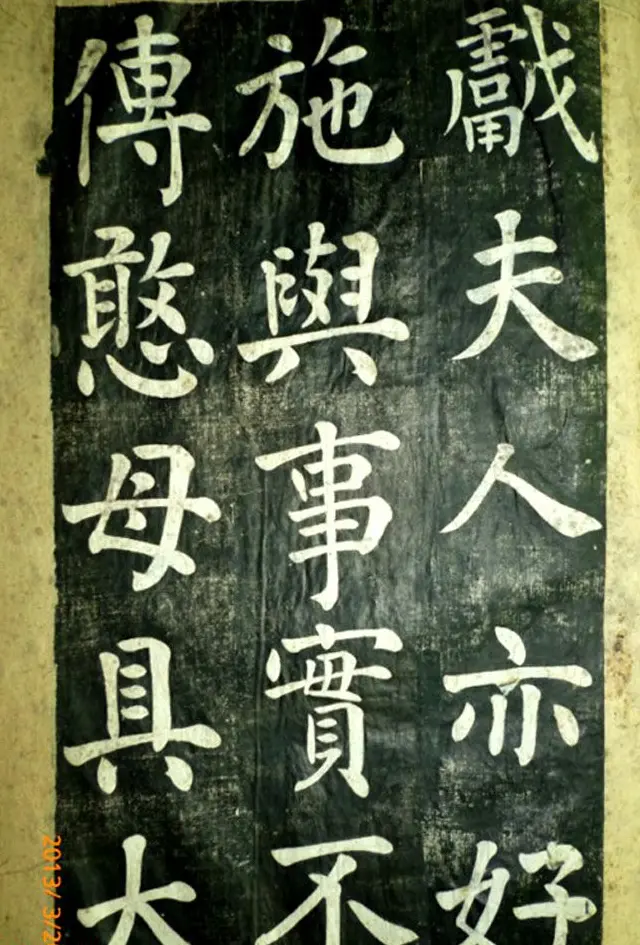 戲夫人亦好
施與事實不
傳憨母具大
2013/ 3/2